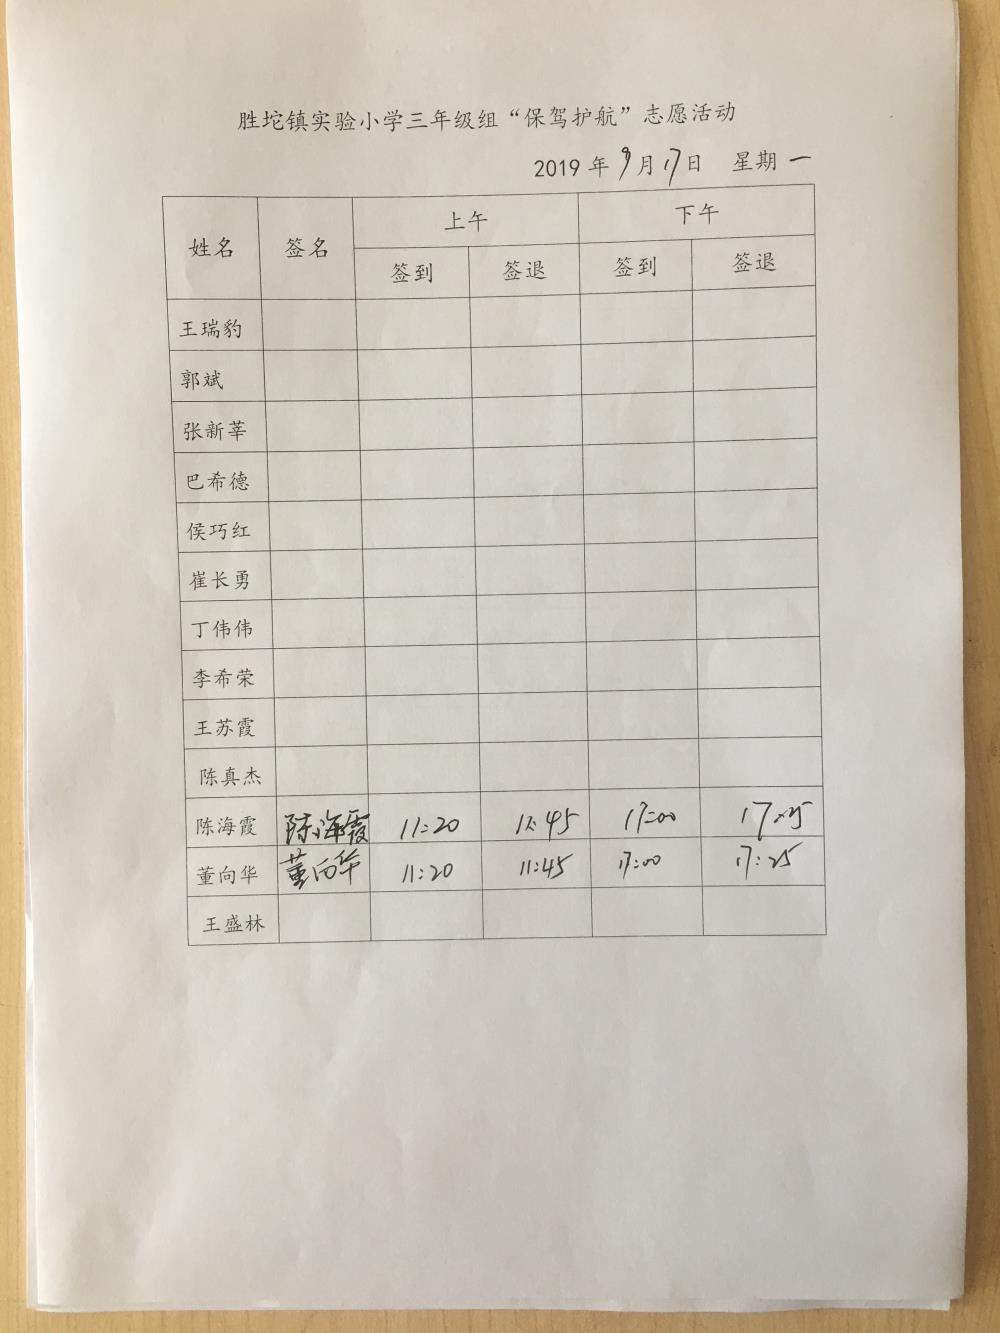 胜坨镇实验小学三年级组“保驾护航”志愿活动
2019 年 9月 17日 星期 一
姓名 签名 上午 下午
签到 签退 签到 签退
王瑞豹
郭斌
张新莘
巴希德
侯巧红
崔长勇
丁伟伟
李希荣
王苏霞
陈真杰
陈海霞 陈海霞 11:20 11:45 17:00 17:25
董向华 董向华 11:20 11:45 17:00 17:25
王盛林